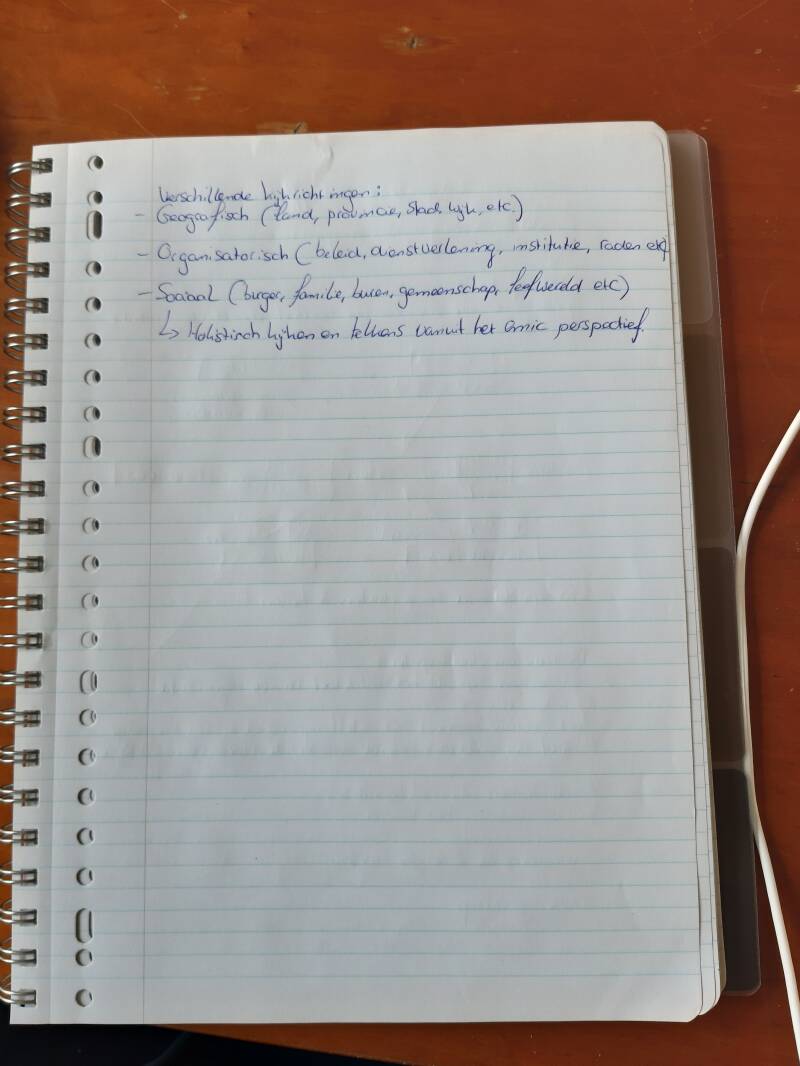 Verschillende kijkrichtingen:
- Geografisch (land, provincie, stad, wijk, etc.)
- Organisatorisch (beleid, dienstverlening, institutie, raden etc)
- Sociaal (burger, familie, buren, gemeenschap, leefwereld etc)
↳ Holistisch kijken en telkens vanuit het emic perspectief.